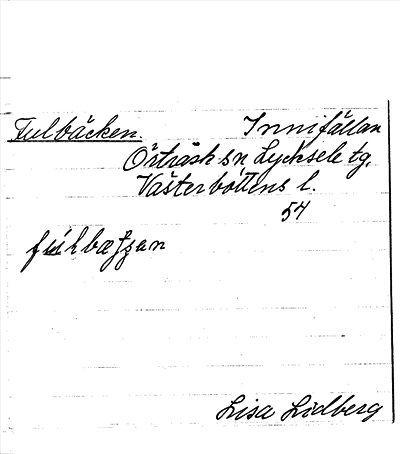 Fulbäcken. Innifällan
Örträsk sn Lycksele tg.
Västerbottens l.
54
Lisa Lidberg